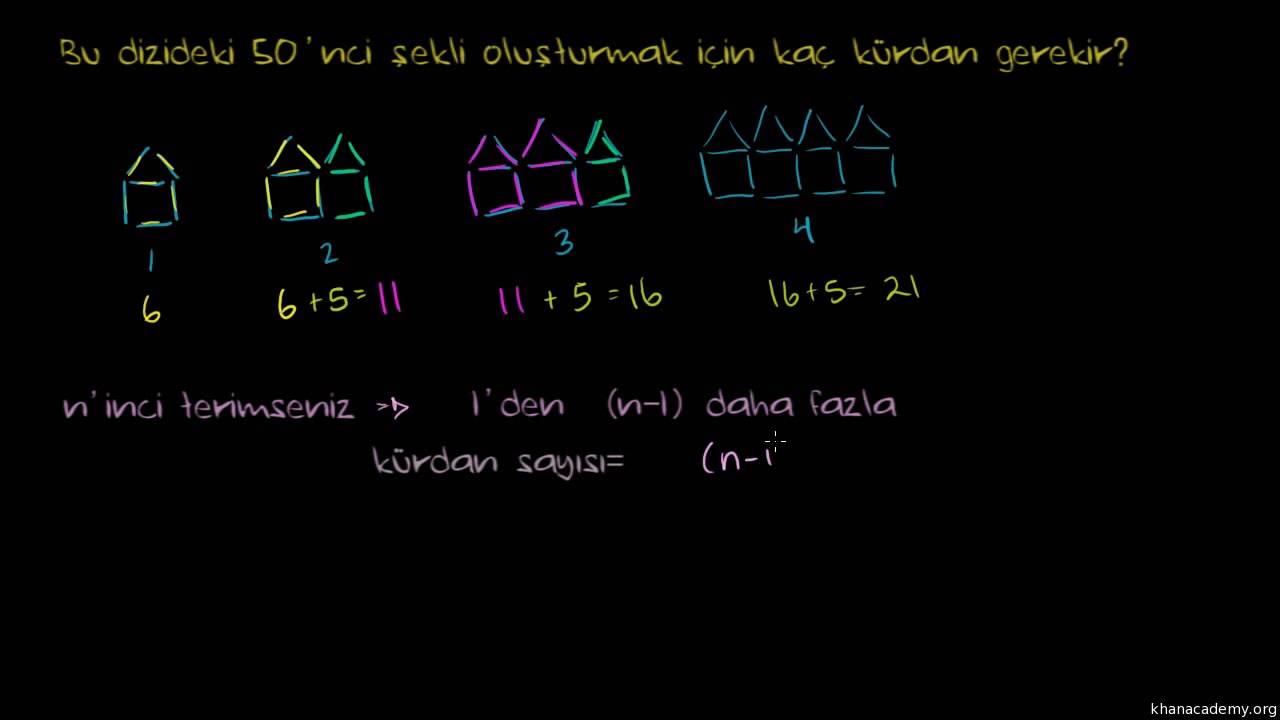 Bu dizideki 50'nci şekli oluşturmak için kaç kürdan gerekir?
1 2 3 4
6 6+5=11 11 + 5 =16 16+5= 21
n'inci terimseniz => 1'den (n-1) daha fazla
kürdan sayısı= (n-1
khanacademy.org